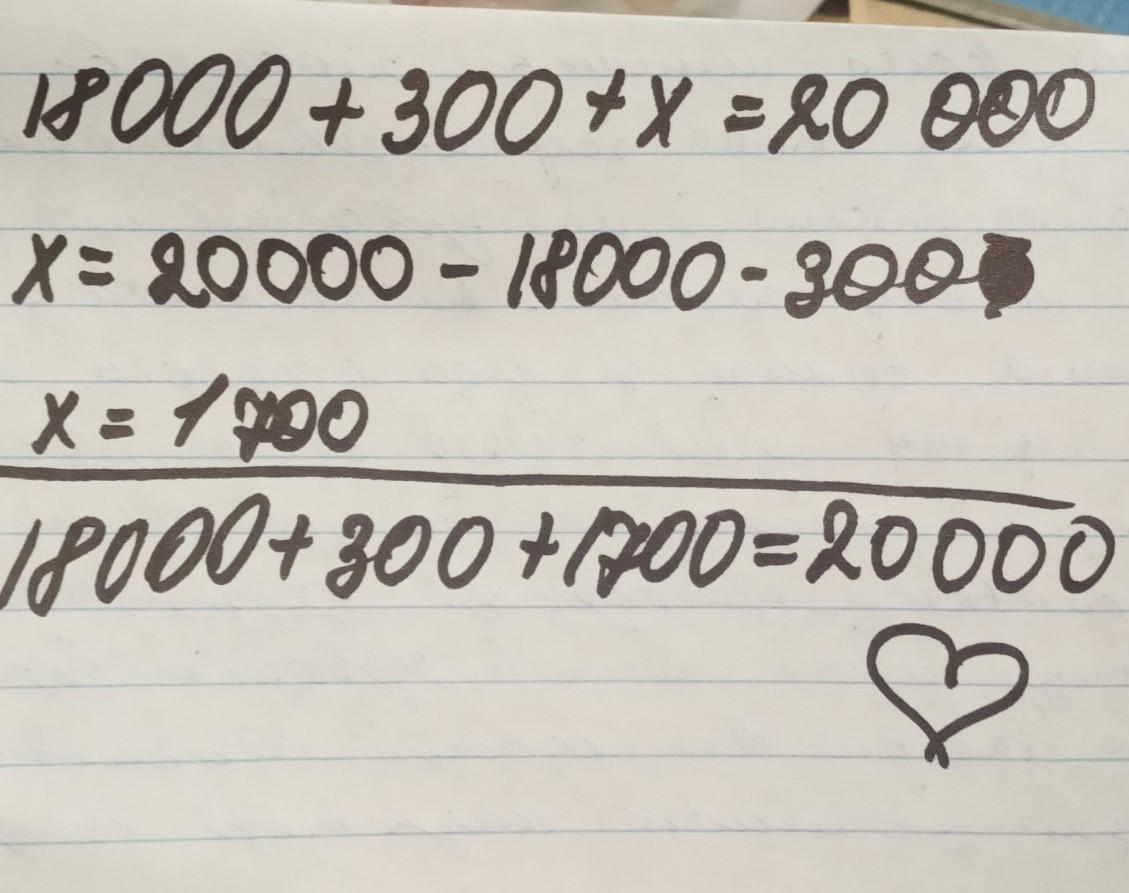 18000 + 300 + x = 20 000
x = 20000 - 18000 - 300
x = 1700
18000 + 300 + 1700 = 20000